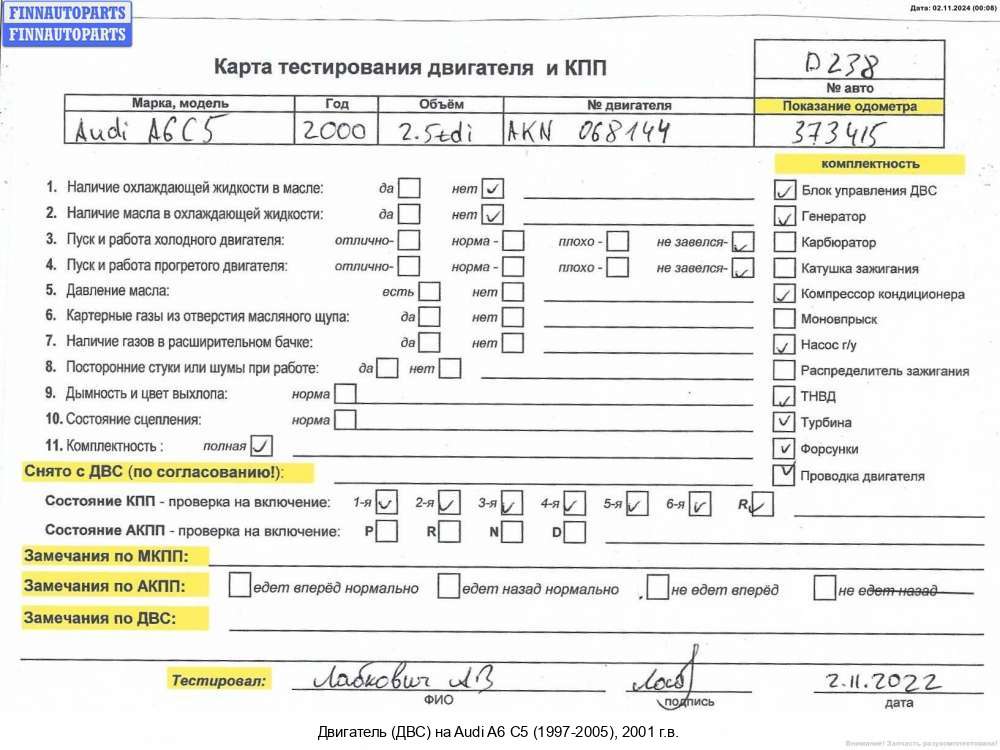 FINNAUTOPARTS
FINNAUTOPARTS
Дата: 02.11.2024 (00:08)
Карта тестирования двигателя и КПП
D238
№ авто
Марка, модель Год Объём № двигателя Показание одометра
Audi A6C5 2000 2.5tdi AKN 068144 373415
комплектность
1. Наличие охлаждающей жидкости в масле: да нет ✓ ✓ Блок управления ДВС
2. Наличие масла в охлаждающей жидкости: да нет ✓ ✓ Генератор
3. Пуск и работа холодного двигателя: отлично- норма - плохо - не завелся- ✓ Карбюратор
4. Пуск и работа прогретого двигателя: отлично- норма - плохо - не завелся- ✓ Катушка зажигания
5. Давление масла: есть нет ✓ Компрессор кондиционера
6. Картерные газы из отверстия масляного щупа: да нет Моновпрыск
7. Наличие газов в расширительном бачке: да нет ✓ Насос г/у
8. Посторонние стуки или шумы при работе: да нет Распределитель зажигания
9. Дымность и цвет выхлопа: норма ✓ ТНВД
10. Состояние сцепления: норма ✓ Турбина
11. Комплектность : полная ✓ ✓ Форсунки
Снято с ДВС (по согласованию!): ✓ Проводка двигателя
Состояние КПП - проверка на включение: 1-я ✓ 2-я ✓ 3-я ✓ 4-я ✓ 5-я ✓ 6-я ✓ R ✓
Состояние АКПП - проверка на включение: P R N D
Замечания по МКПП:
Замечания по АКПП: едет вперёд нормально едет назад нормально не едет вперёд не едет назад
Замечания по ДВС:
Тестировал: Лабкович АВ Лаб 2.11.2022
ФИО подпись дата
Двигатель (ДВС) на Audi A6 C5 (1997-2005), 2001 г.в.
Внимание! Запчасть разукомплектована!